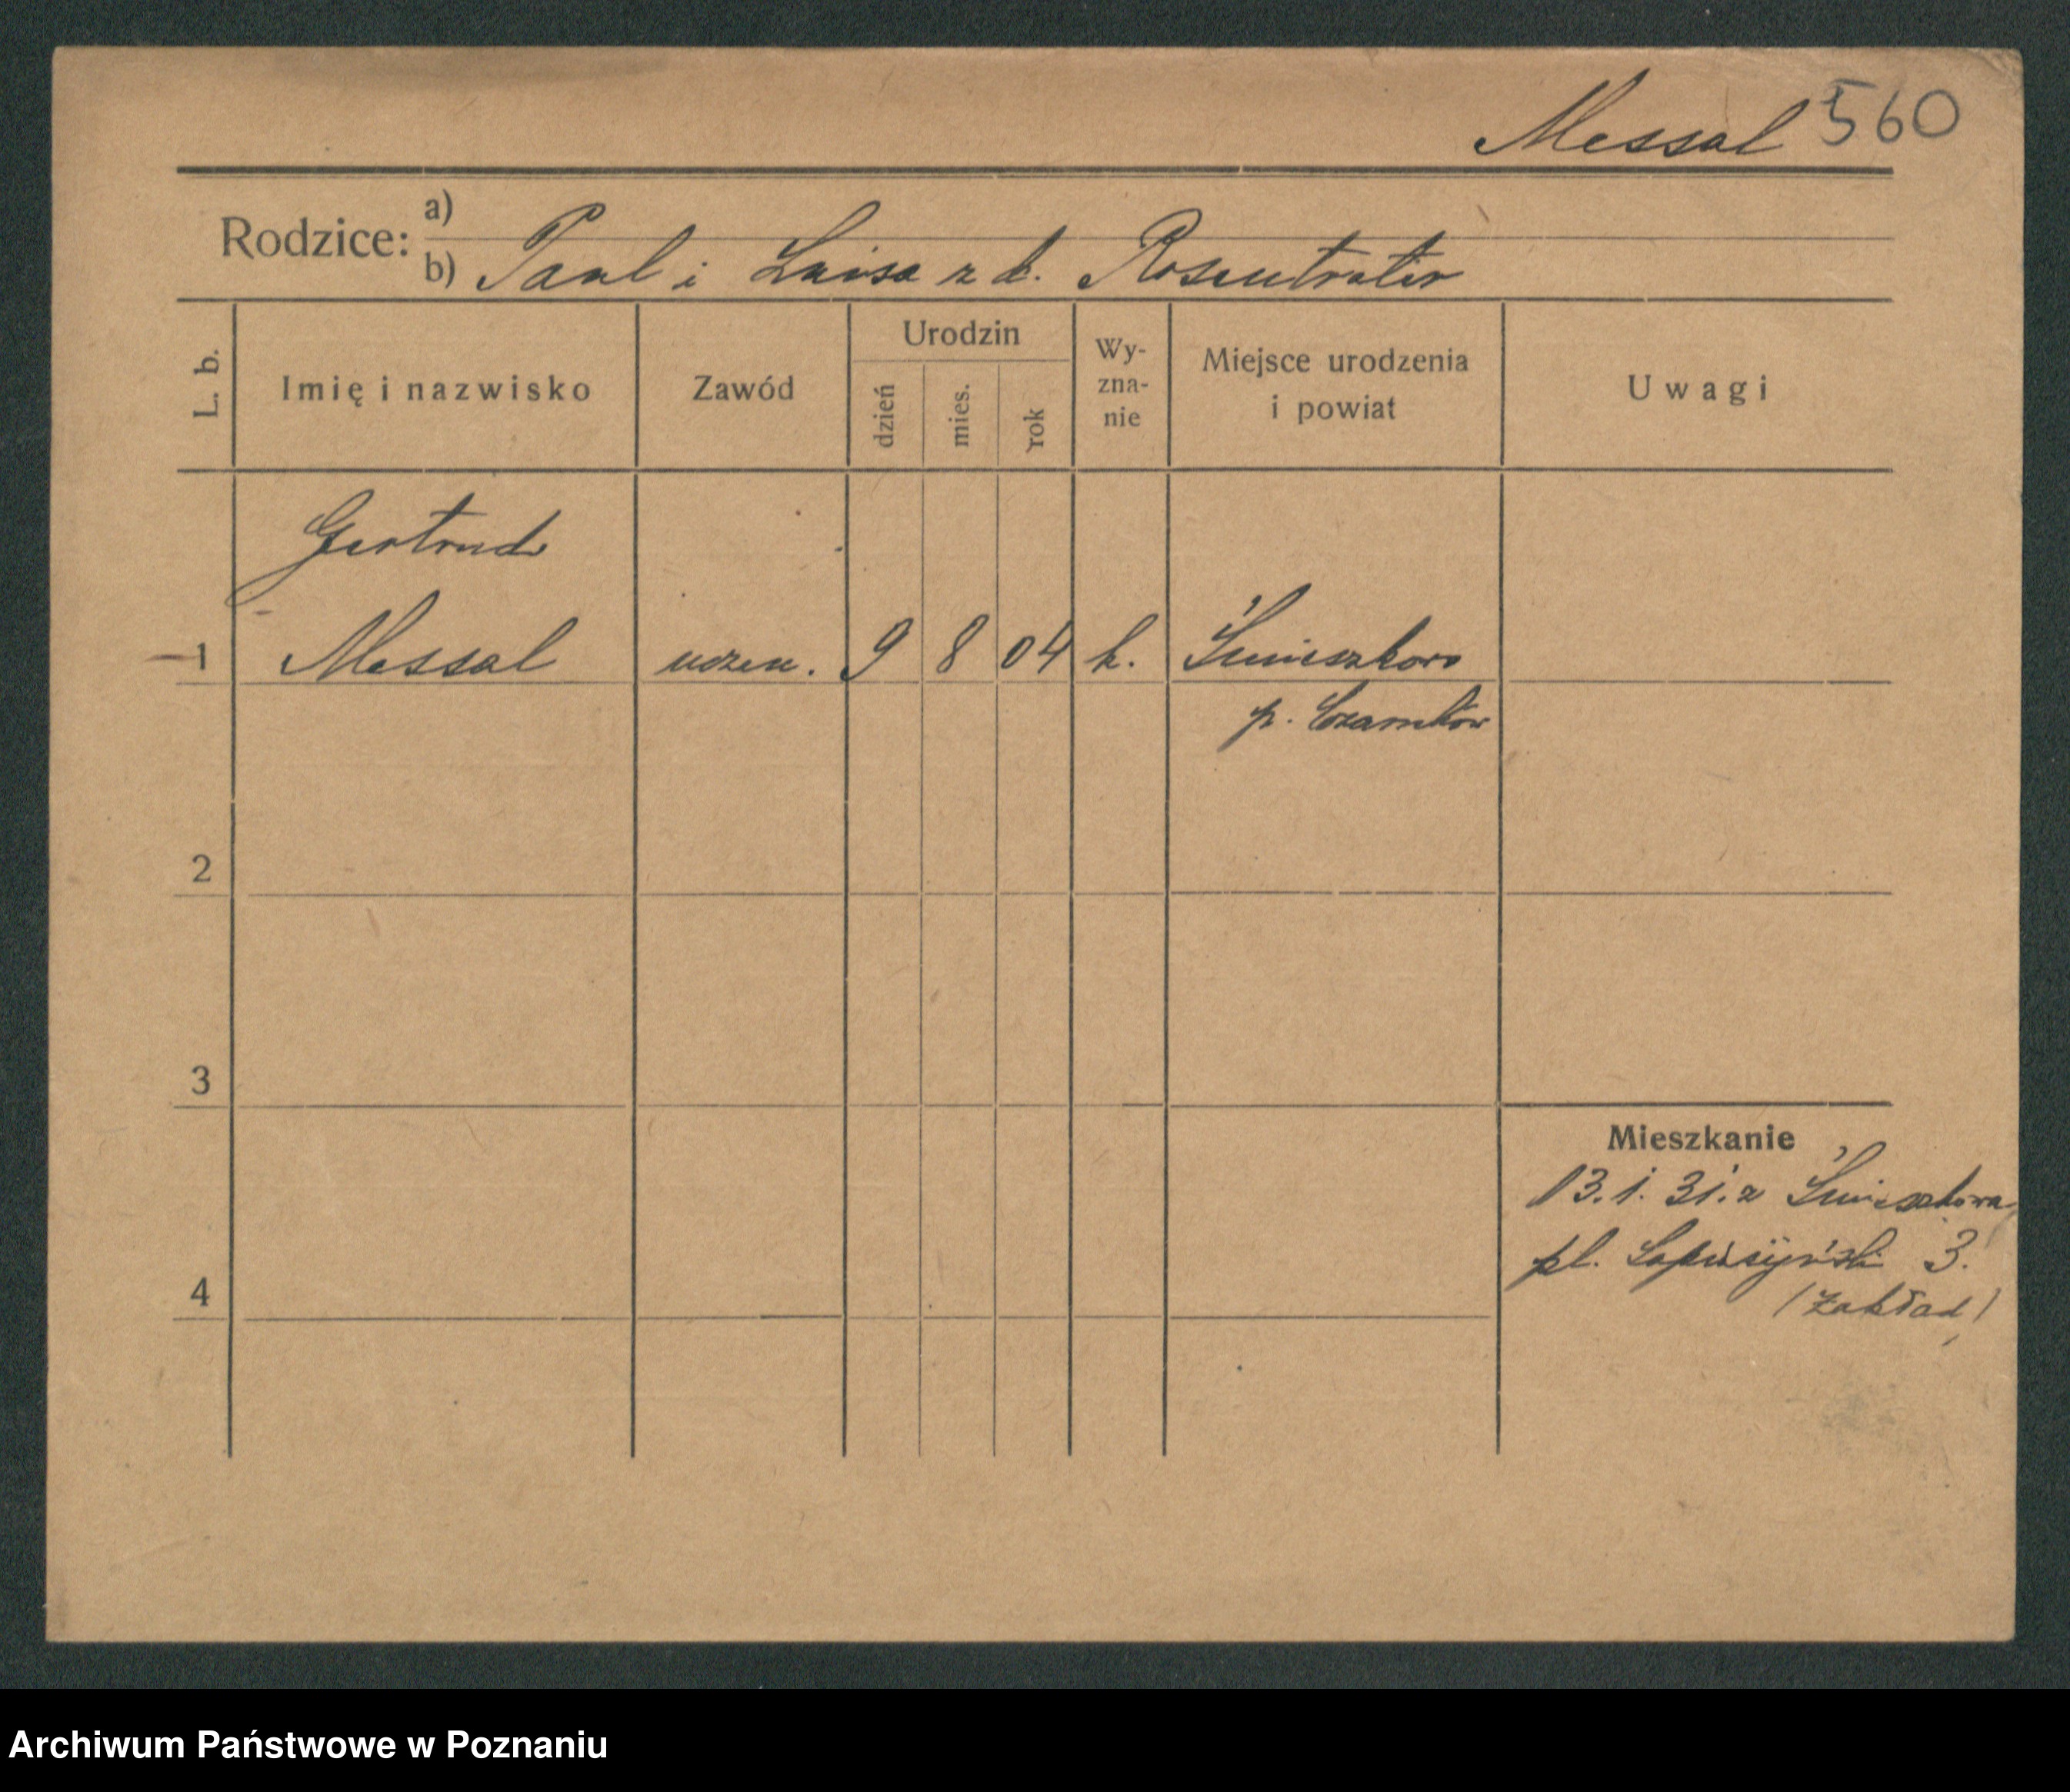 Messal 560
Rodzice: a)
b) Paul i Luisa z d. Rosentreter
L. b.
Imię i nazwisko
Zawód
Urodzin
dzień
mies.
rok
Wy-
zna-
nie
Miejsce urodzenia
i powiat
Uwagi
Gertrud
1 Messal uczen. 9 8 04 k. Śmieszkowo
p. Czarnków
2
3
4
Mieszkanie
13.1.31. z Śmieszkowa
pl. 3.
(zakład)
Archiwum Państwowe w Poznaniu